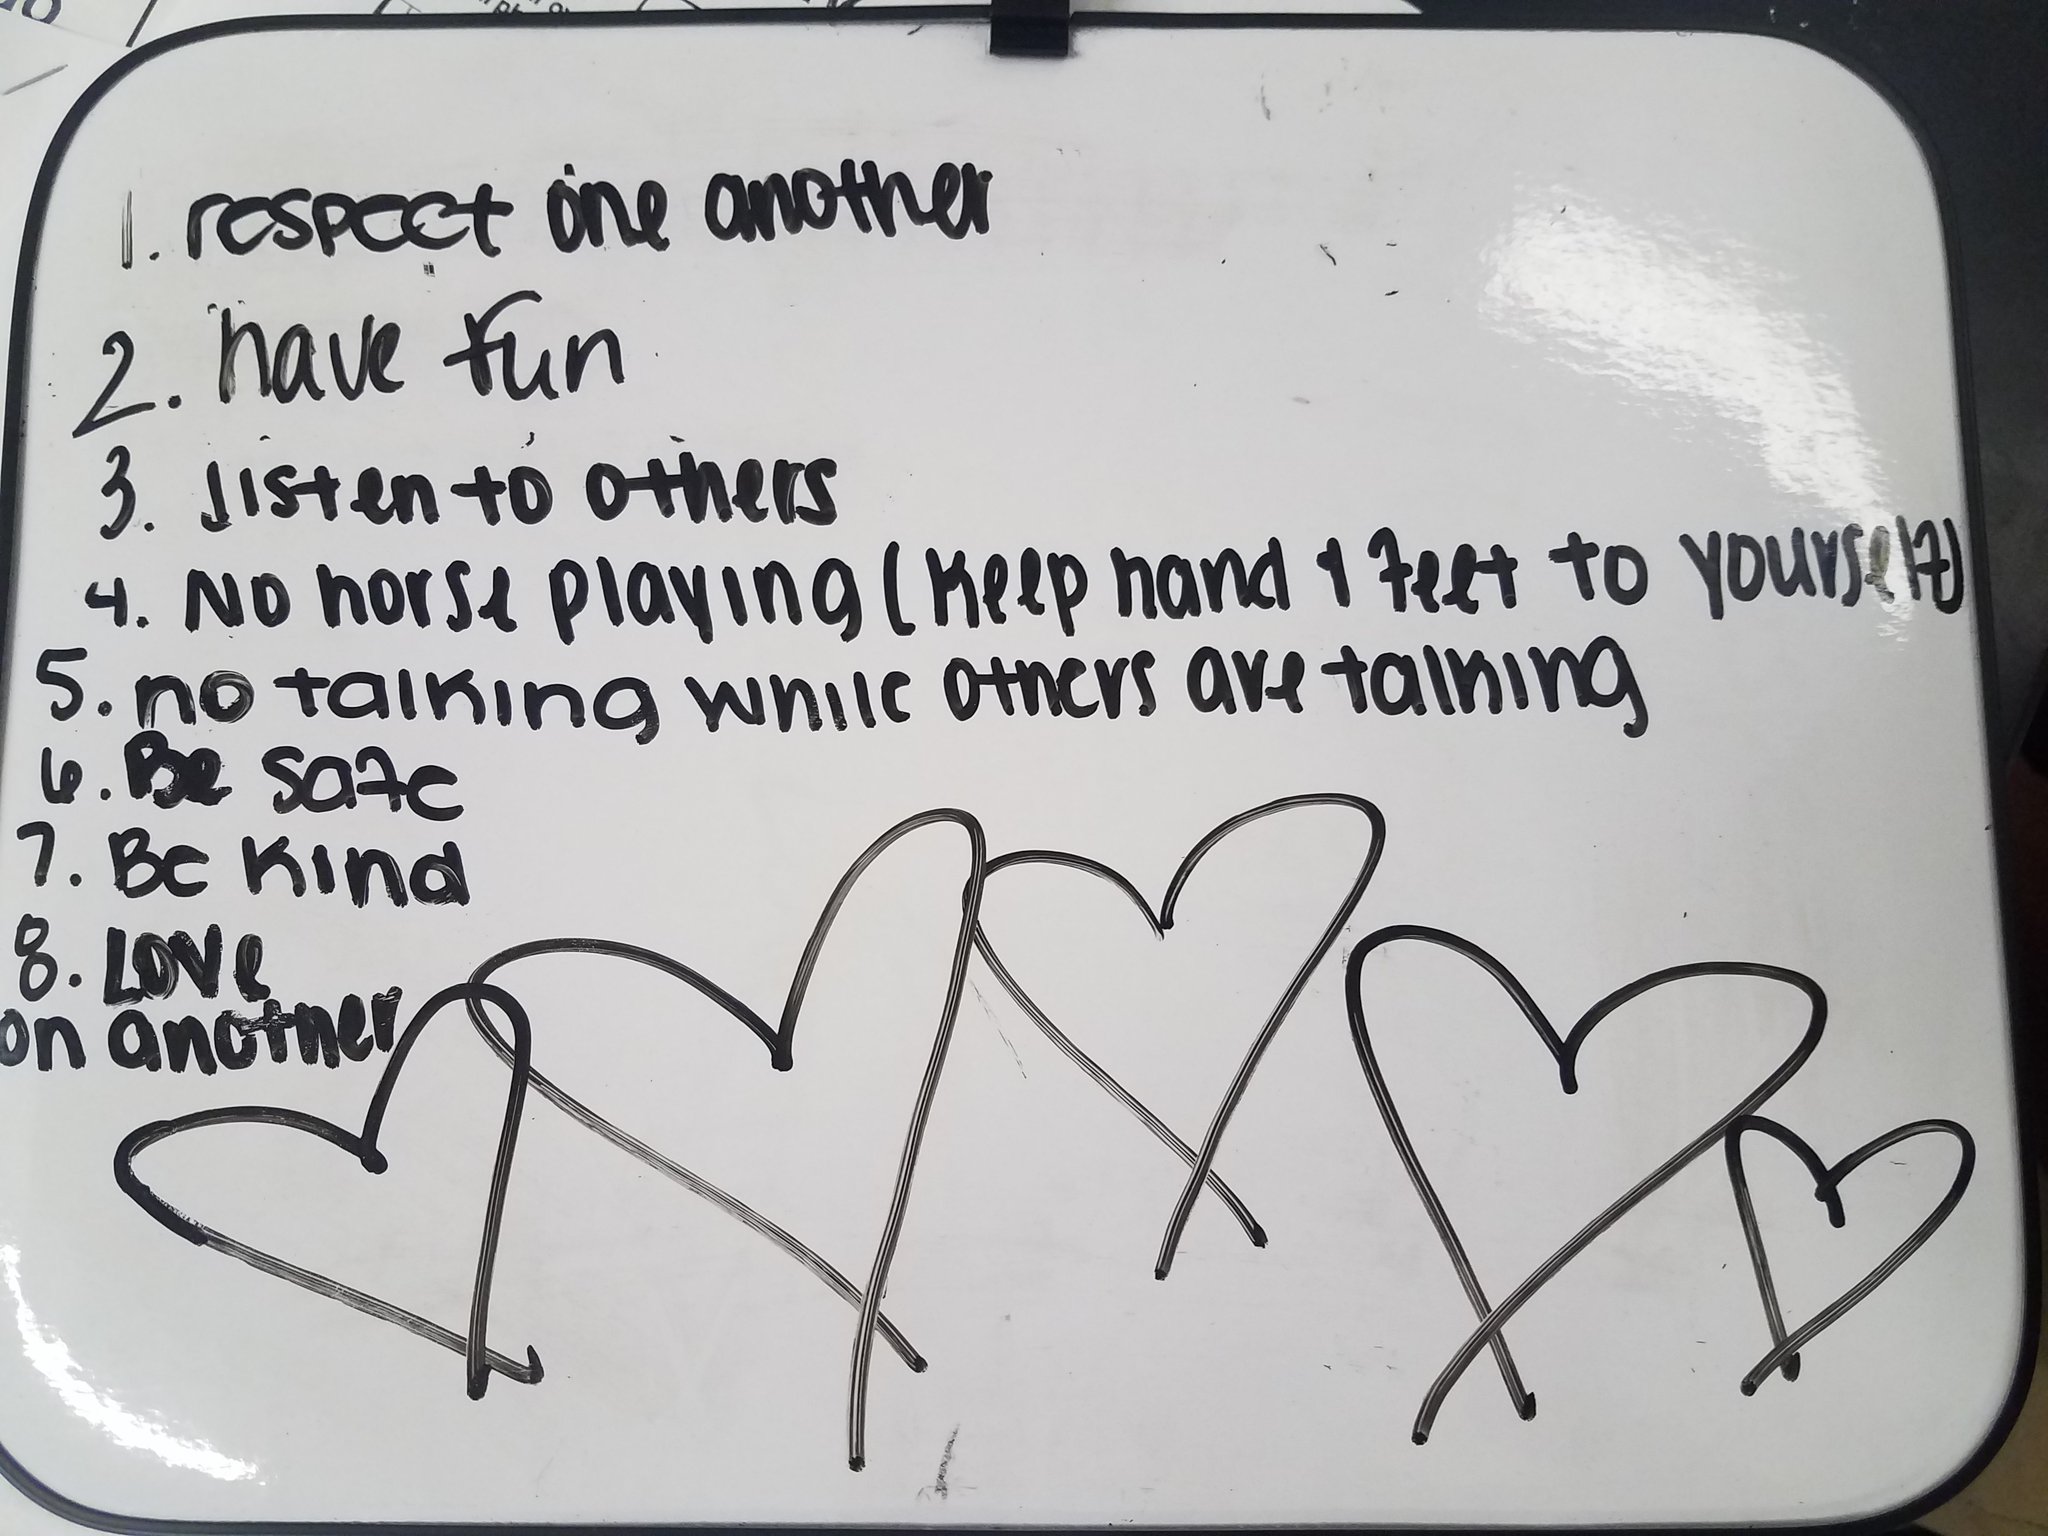 1. respect one another
2. have fun
3. listen to others
4. No horse playing (Keep hand & feet to yourself)
5. no talking while others are talking
6. Be safe
7. Be kind
8. Love
on another